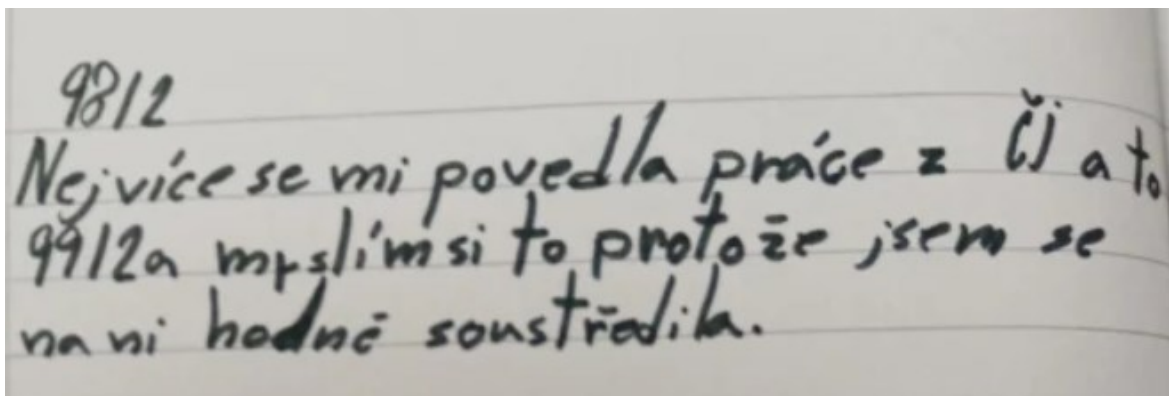 98/2
Nejvíce se mi povedla práce z Čj a to
99/2a myslím si to protože jsem se
na ni hodně soustředila.